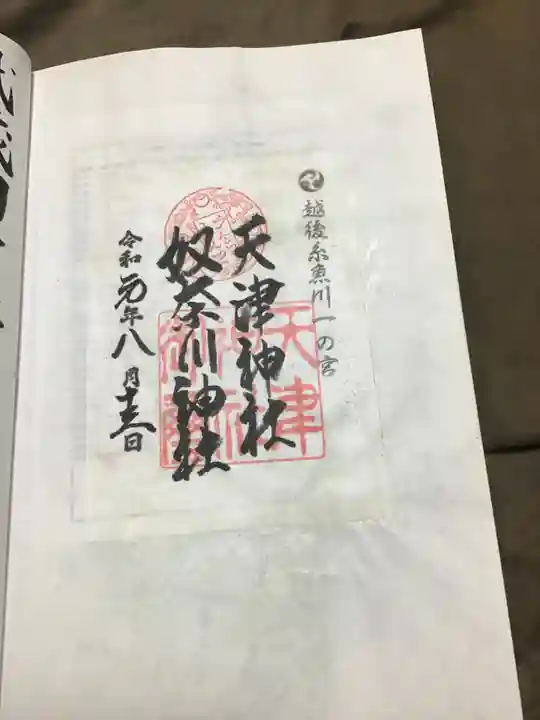 越後糸魚川一の宮
天津神社
奴奈川神社
令和元年八月十三日
天津
神社